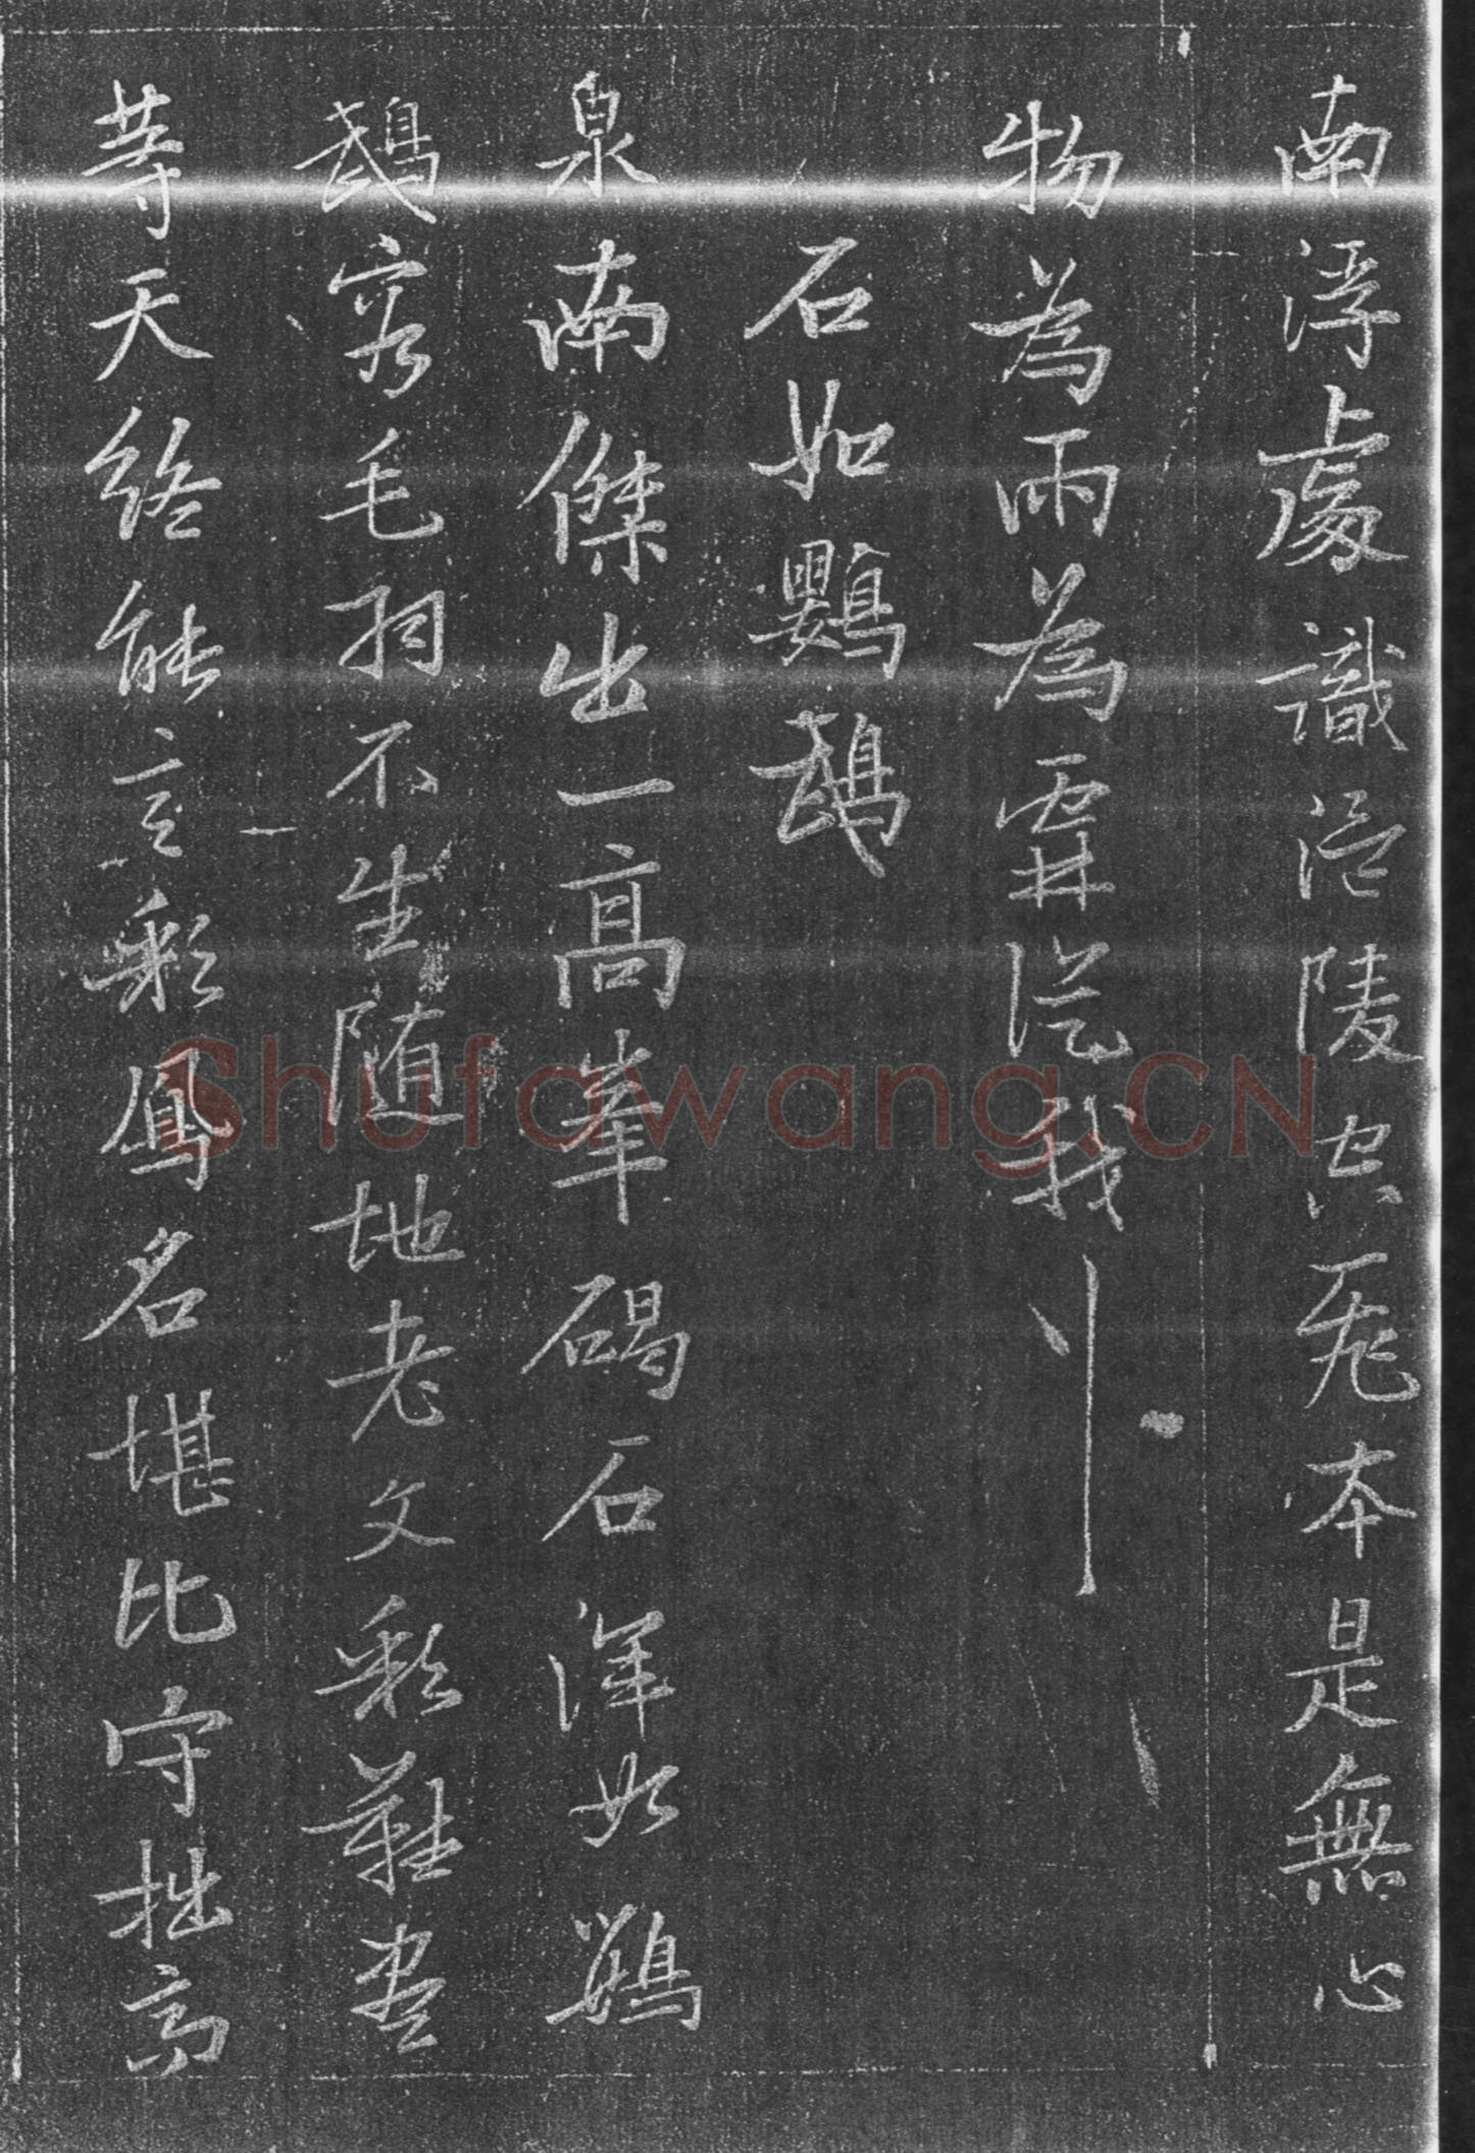 南浮處識涪陵飛本是無心
物為雨為從我
石如鸚鵡
泉南傑出一高峯碣石渾如鸚
鵡容毛羽不生随地老文彩難盡
等天終能言彩鳳名堪比守拙高
Shufawang.CN